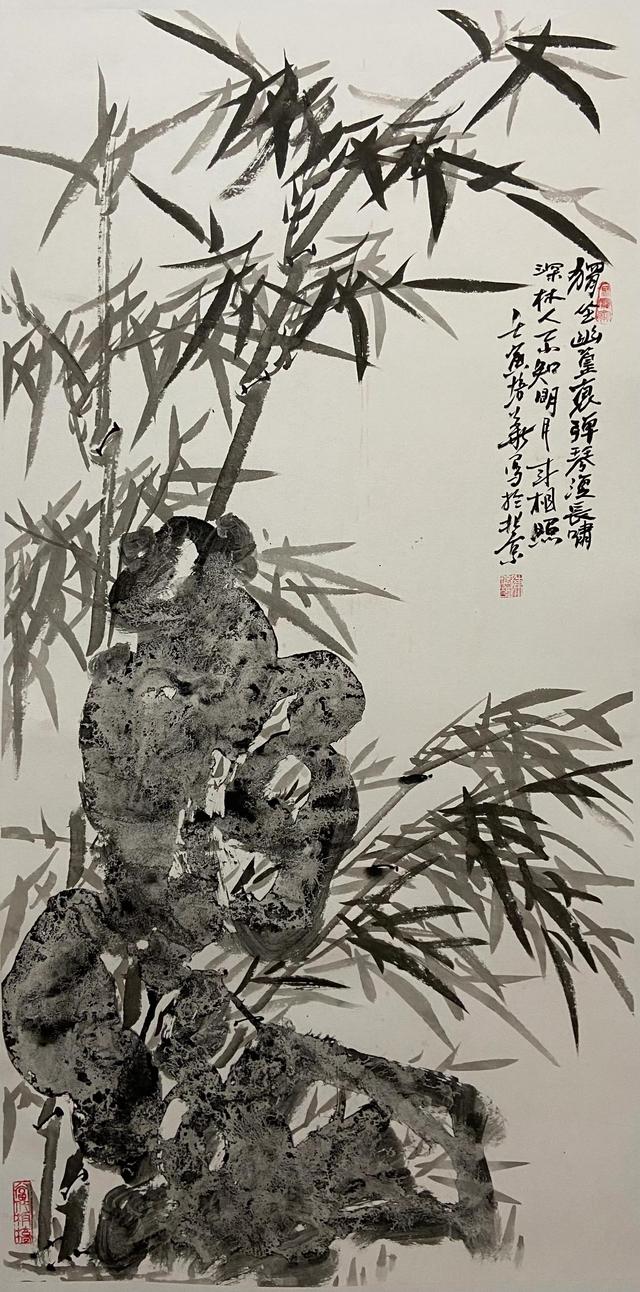 獨坐幽篁裏彈琴復長嘯
深林人不知明月来相照
壬寅培華写於北京